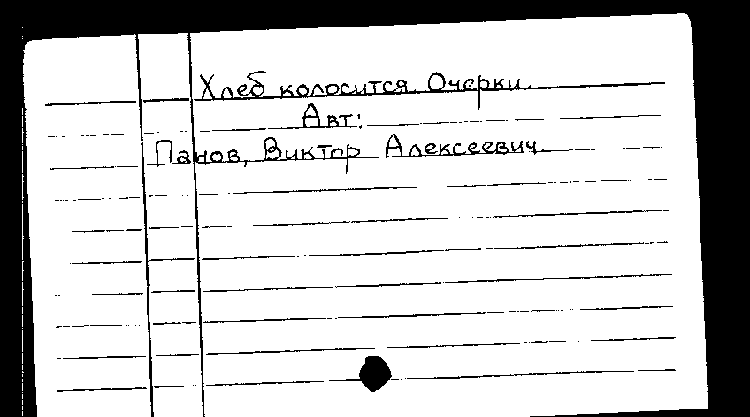 Хлеб колосится. Очерки.
Авт:
Панов, Виктор Алексеевич.